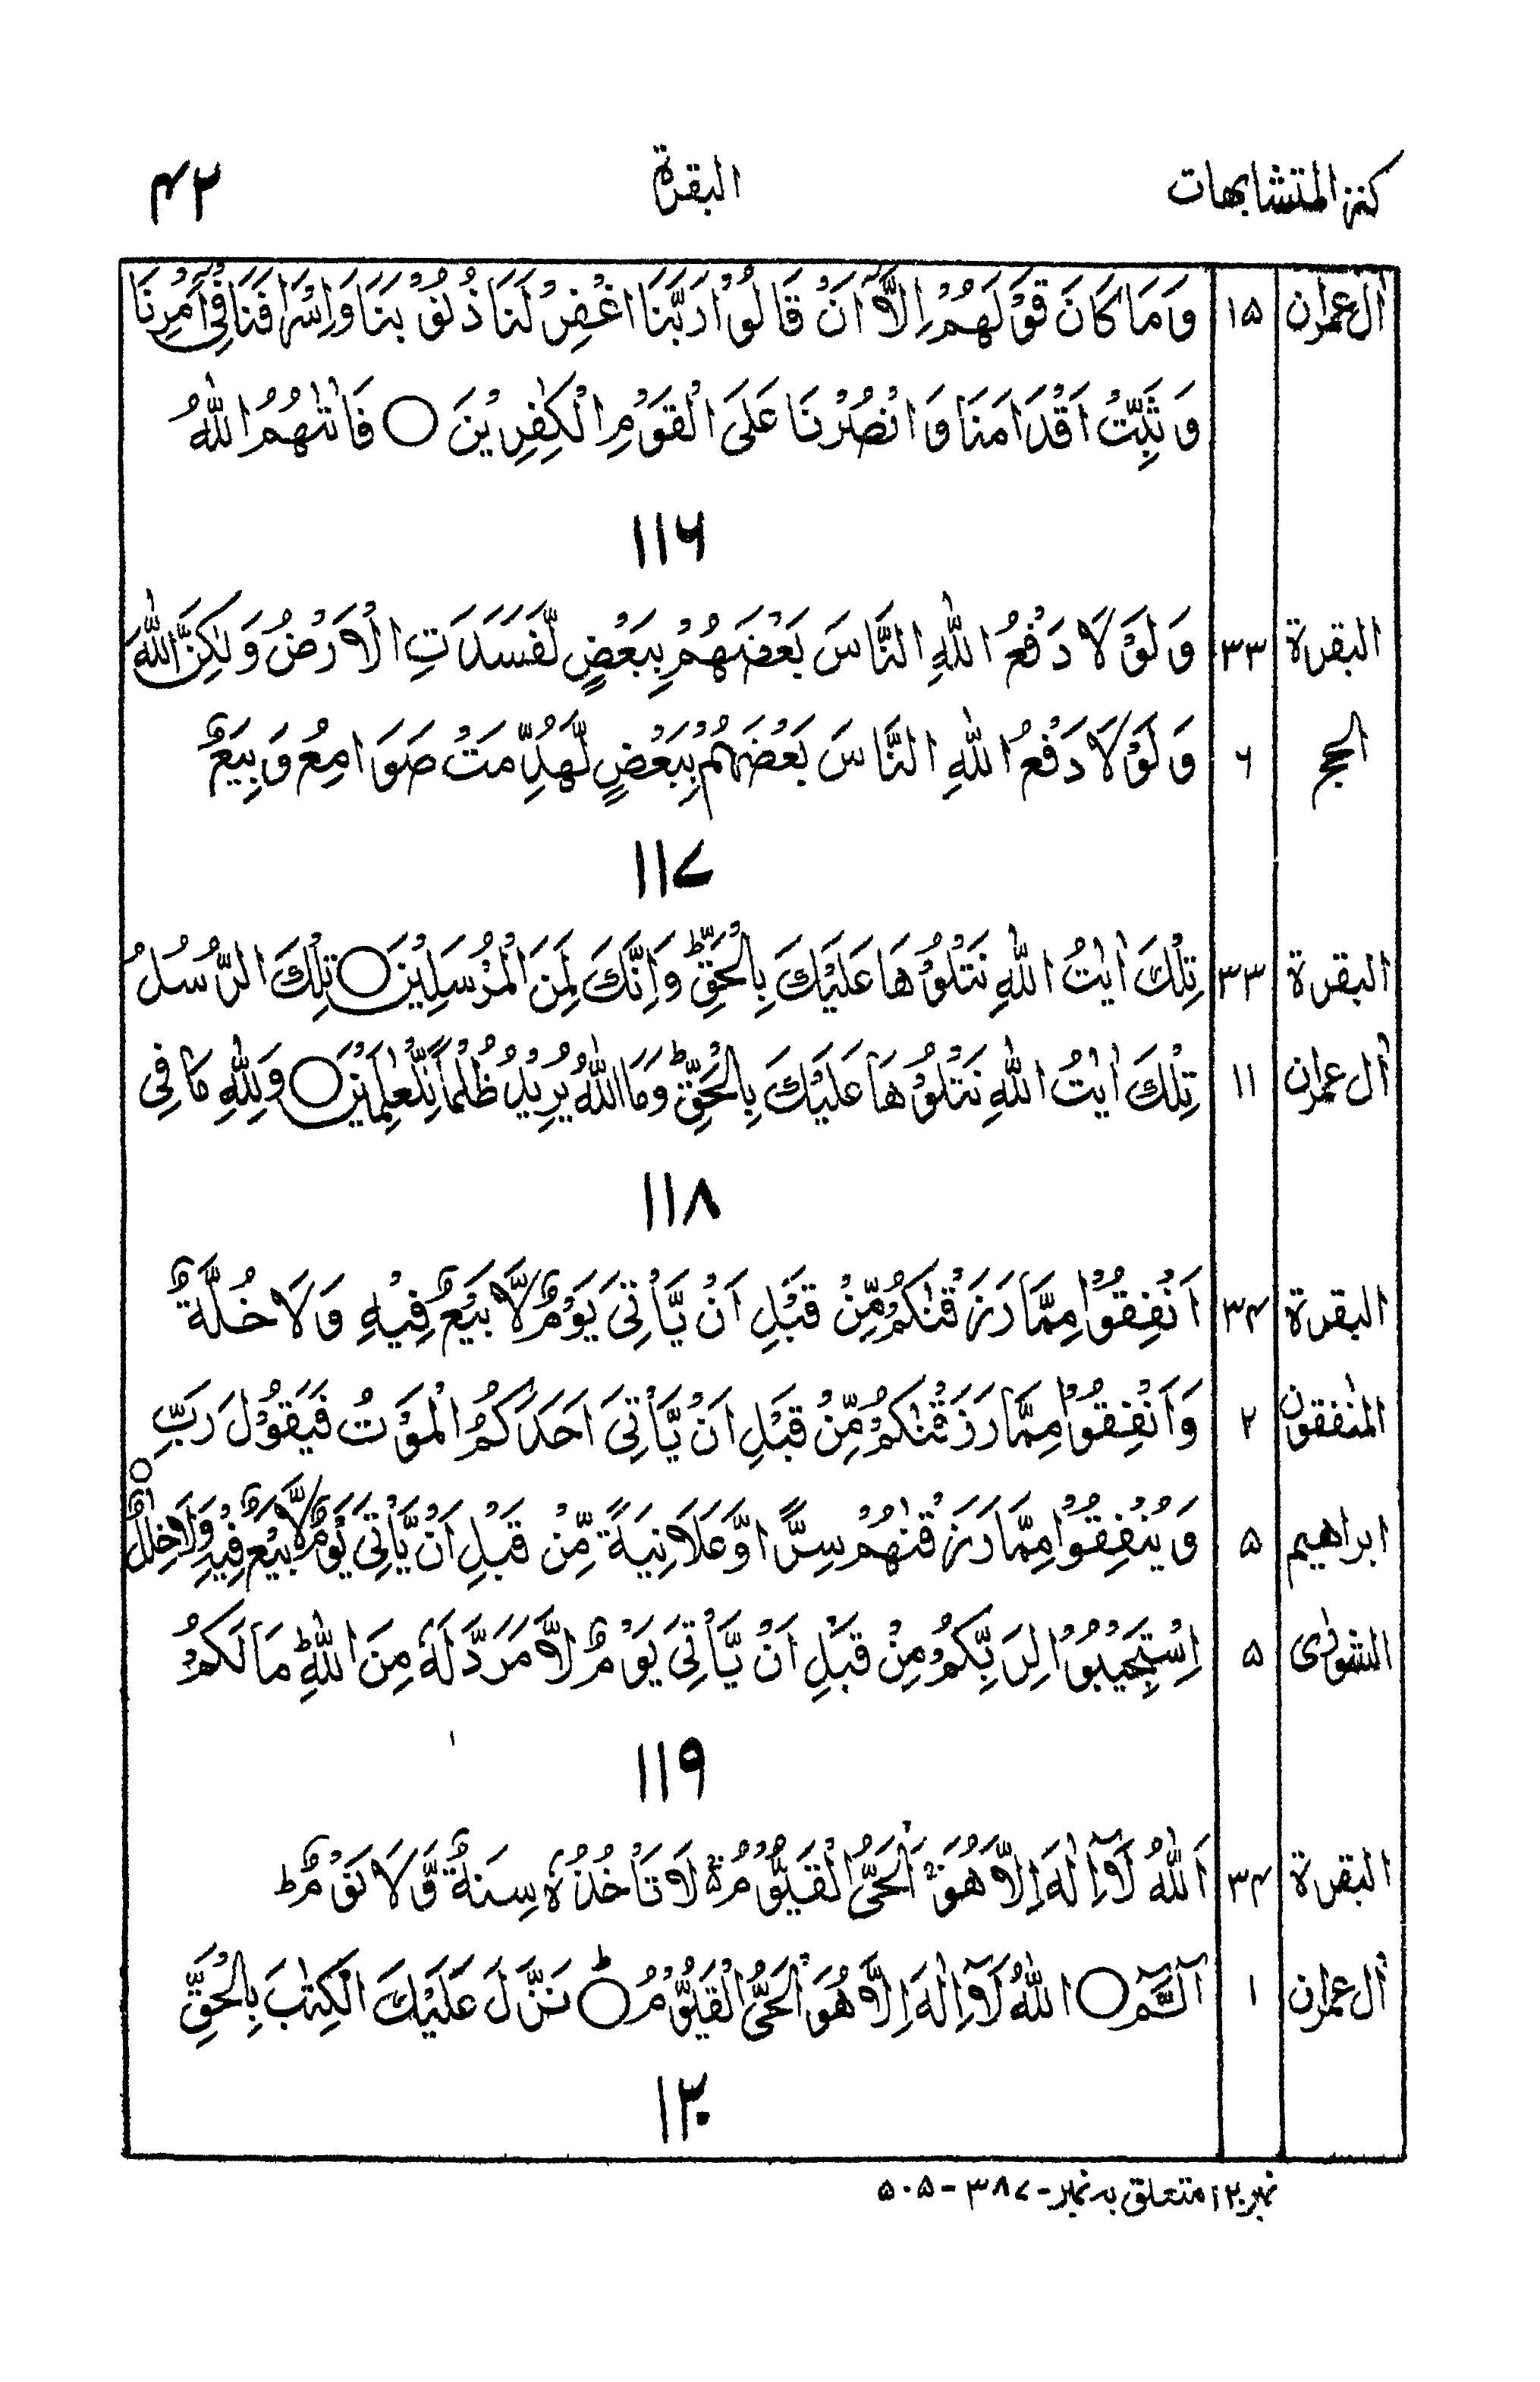 كنز المتشابهات البقرة ۴۲
اٰل عمرٰن ۱۵ وَمَا كَانَ قَوْلَهُمْ اِلَّاۤ اَنْ قَالُوْا رَبَّنَا اغْفِرْ لَنَا ذُنُوْبَنَا وَاِسْرَافَنَا فِيْۤ اَمْرِنَا
وَثَبِّتْ اَقْدَامَنَا وَانْصُرْنَا عَلَى الْقَوْمِ الْكٰفِرِيْنَ ○ فَاٰتٰهُمُ اللّٰهُ
۱۱۶
البقرة ۳۳ وَلَوْلَا دَفْعُ اللّٰهِ النَّاسَ بَعْضَهُمْ بِبَعْضٍ لَّفَسَدَتِ الْاَرْضُ وَلٰكِنَّ اللّٰهَ
الحج ۶ وَلَوْلَا دَفْعُ اللّٰهِ النَّاسَ بَعْضَهُمْ بِبَعْضٍ لَّهُدِّمَتْ صَوَامِعُ وَبِيَعٌ
۱۱۷
البقرة ۳۳ تِلْكَ اٰيٰتُ اللّٰهِ نَتْلُوْهَا عَلَيْكَ بِالْحَقِّ ؕ وَاِنَّكَ لَمِنَ الْمُرْسَلِيْنَ ○ تِلْكَ الرُّسُلُ
اٰل عمرٰن ۱۱ تِلْكَ اٰيٰتُ اللّٰهِ نَتْلُوْهَا عَلَيْكَ بِالْحَقِّ ؕ وَمَا اللّٰهُ يُرِيْدُ ظُلْمًا لِّلْعٰلَمِيْنَ ○ وَلِلّٰهِ مَا فِى
۱۱۸
البقرة ۳۴ اَنْفِقُوْا مِمَّا رَزَقْنٰكُمْ مِّنْ قَبْلِ اَنْ يَّاْتِىَ يَوْمٌ لَّا بَيْعٌ فِيْهِ وَلَا خُلَّةٌ
المنٰفقون ۲ وَاَنْفِقُوْا مِمَّا رَزَقْنٰكُمْ مِّنْ قَبْلِ اَنْ يَّاْتِىَ اَحَدَكُمُ الْمَوْتُ فَيَقُوْلَ رَبِّ
ابراهيم ۵ وَيُنْفِقُوْا مِمَّا رَزَقْنٰهُمْ سِرًّا وَّعَلَانِيَةً مِّنْ قَبْلِ اَنْ يَّاْتِىَ يَوْمٌ لَّا بَيْعٌ فِيْهِ وَلَا خِلٰلٌ ○
الشورٰى ۵ اِسْتَجِيْبُوْا لِرَبِّكُمْ مِنْ قَبْلِ اَنْ يَّاْتِىَ يَوْمٌ لَّا مَرَدَّ لَهٗ مِنَ اللّٰهِ ؕ مَا لَكُمْ
۱۱۹
البقرة ۳۴ اَللّٰهُ لَاۤ اِلٰهَ اِلَّا هُوَ ۚ اَلْحَىُّ الْقَيُّوْمُ ۚ لَا تَاْخُذُهٗ سِنَةٌ وَّلَا نَوْمٌ ؕ
اٰل عمرٰن ۱ الٓمّٓ ○ اللّٰهُ لَاۤ اِلٰهَ اِلَّا هُوَ الْحَىُّ الْقَيُّوْمُ ○ؕ نَزَّلَ عَلَيْكَ الْكِتٰبَ بِالْحَقِّ
۱۲۰
نمبر ۱۲۰ متعلق به نمبر - ۳۸۷ - ۵۰۵